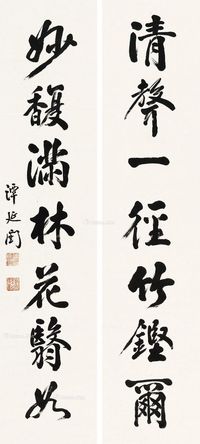 清聲一徑竹鏗爾
妙馥滿林花翳如
譚延闓